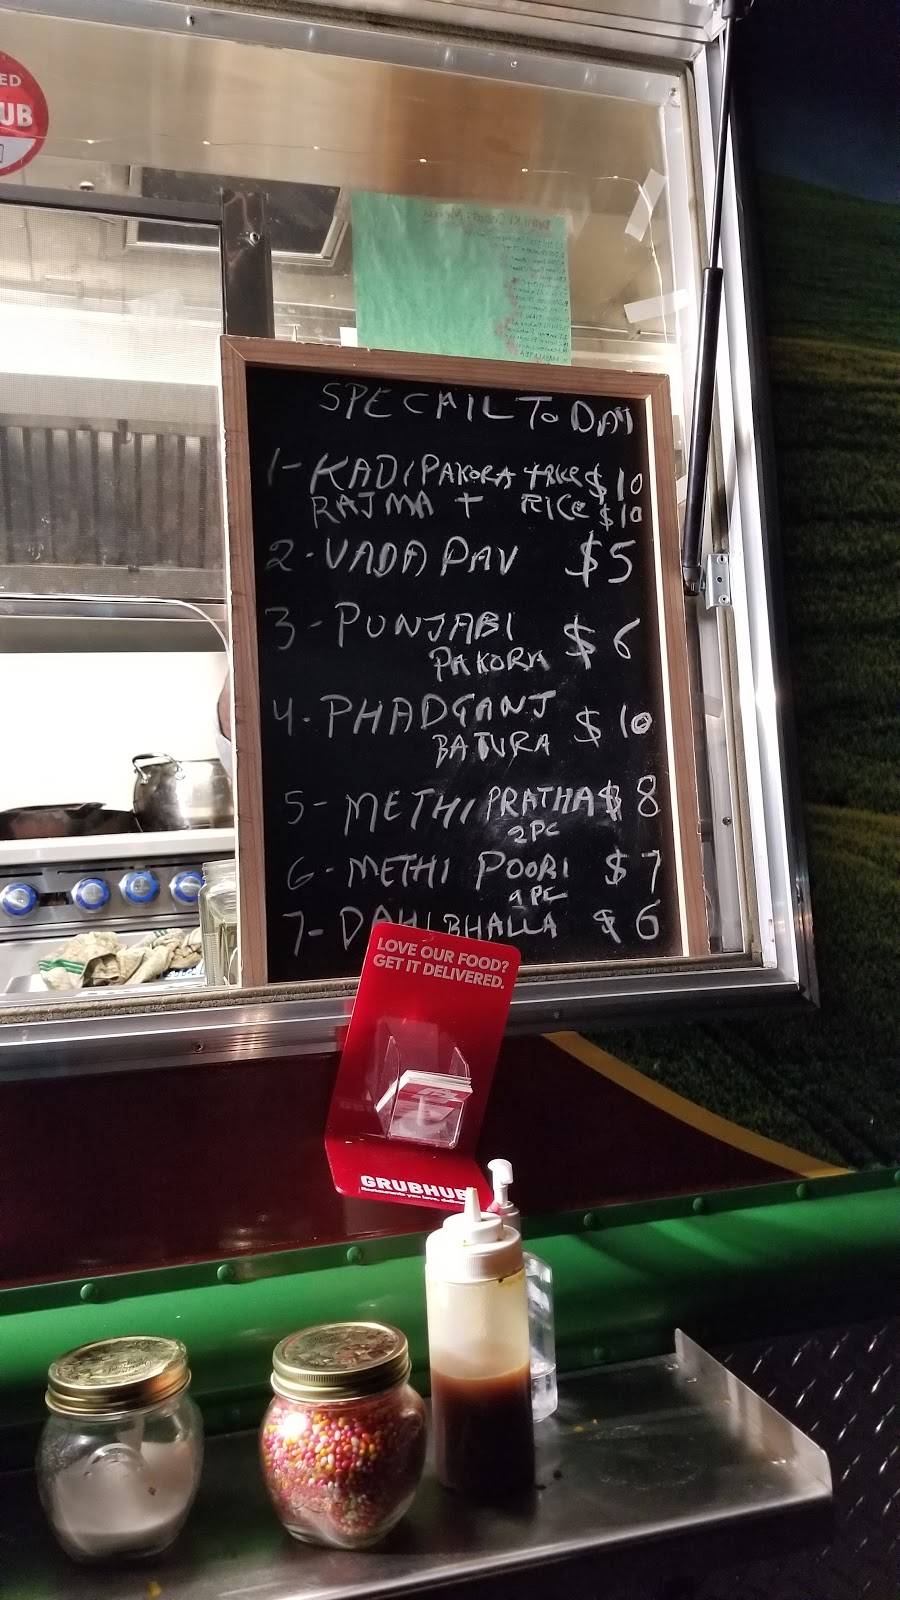 ED
UB
SPECAIL To DAY
1- KADI PAKORA + RICE $10
RAJMA + RICE $10
2- VADA PAV $5
3- PUNJABI $6
PAKORA
4- PHADGANJ $10
BATURA
5- METHI PRATHA $8
2PC
6- METHI POORI $7
7- DAHI BHALLA $6
LOVE OUR FOOD?
GET IT DELIVERED.
GRUBHUB